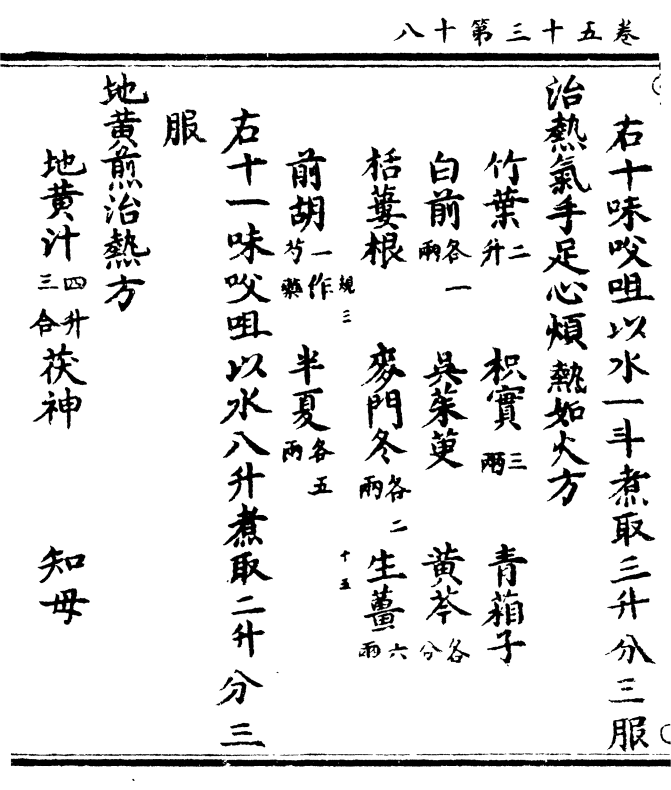 卷五十三第十八
右十味㕮咀以水一斗煮取三升分三服
治熱氣手足心煩熱如火方
竹葉二升 枳實三兩 青葙子
白前各一兩 吳茱萸 黃芩各分
栝蔞根 麥門冬各二兩 生薑六兩
規三 十五
前胡一作芍藥 半夏各五兩
右十一味㕮咀以水八升煮取二升分三
服
地黃煎治熱方
地黃汁四升三合 茯神 知母